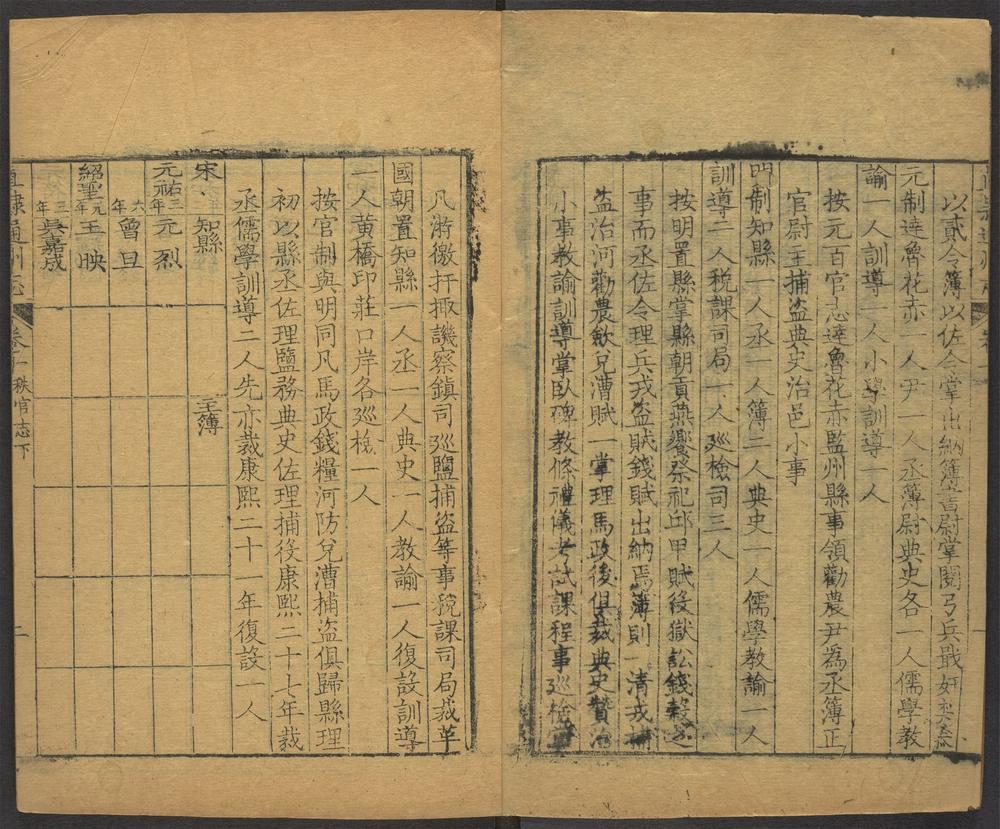 以貳令簿以佐令掌出納簿書尉掌閱弓兵戢奸
元制達魯花赤一人尹一人丞簿尉典史各一人儒學教
諭一人訓導一人小學訓導一人
按元百官志達魯花赤監州縣事領勸農尹為丞簿正
官尉主捕盜典史治邑小事
明制知縣一人丞一人簿二人典史一人儒學教諭一人
訓導二人稅課司局一人廵檢司三人
按明置縣掌縣朝貢燕饗祭祀邱甲賦役獄訟錢穀之
事而丞佐令理兵戎盜賊錢賦出納焉簿則一清戎捕
盜治河勸農歛兌漕賦一掌理馬政後俱裁典史贊治
小事教諭訓導掌臥碑教條禮儀考試課程事廵檢
凡游徼扞掫譏察鎮司廵鹽捕盜等事稅課司局裁革
國朝置知縣一人丞一人典史一人教諭一人復設訓導
一人黃橋印莊口岸各廵檢一人
按官制與明同凡馬政錢糧河防兌漕捕盜俱歸縣理
初以縣丞佐理鹽務典史佐理捕役康熙二十七年裁
丞儒學訓導二人先亦裁康熙二十一年復設一人
宋 知縣 主簿
元祐三年 元烈
六年 曾旦
紹聖元年 王映
三年 吳嘉成
通州志 卷二 秩官志下 二